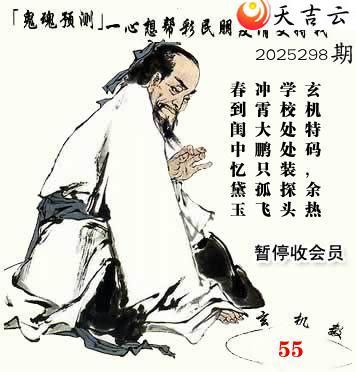 「鬼魂预测」一心想帮彩民朋
天吉云
2025298期
玄机特码,余热
学校处处装探头
冲霄大鹏只孤飞
春到闺中忆黛玉
暂停收会员
玄机数
55